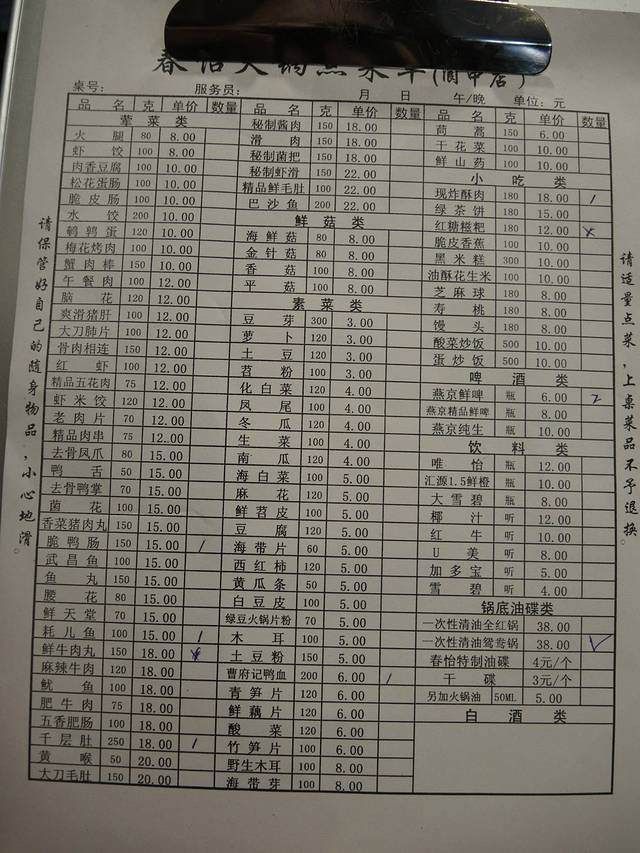 春怡火锅点菜单(阆中店)
桌号: 服务员: 月 日 午/晚 单位: 元
品名 克 单价 数量
荤菜类
火腿 80 8.00
虾饺 100 8.00
肉香豆腐 100 10.00
松花蛋肠 100 10.00
脆皮肠 100 10.00
水饺 200 10.00
鹌鹑蛋 120 10.00
梅花烤肉 100 10.00
蟹肉棒 150 10.00
午餐肉 100 12.00
脑花 120 12.00
爽滑猪肝 100 12.00
大刀肺片 100 12.00
骨肉相连 150 12.00
红虾 100 12.00
精品五花肉 75 12.00
虾米饺 120 12.00
老肉片 70 12.00
精品肉串 75 12.00
去骨凤爪 80 15.00
鸭舌 50 15.00
去骨鸭掌 70 15.00
菌花 100 15.00
香菜猪肉丸 150 15.00
脆鸭肠 150 15.00 1
武昌鱼 100 15.00
鱼丸 150 15.00
腰花 80 15.00
鲜天堂 70 15.00
耗儿鱼 100 15.00 1
鲜牛肉丸 150 18.00
麻辣牛肉 120 18.00
鱿鱼 100 18.00
肥牛肉 75 18.00
五香肥肠 100 18.00
千层肚 250 18.00 1
黄喉 50 20.00
大刀毛肚 150 20.00
品名 克 单价 数量
秘制酱肉 150 18.00
滑肉 150 18.00
秘制菌把 150 18.00
秘制虾滑 150 22.00
精品鲜毛肚 100 22.00
巴沙鱼 200 22.00
鲜菇类
海鲜菇 80 8.00
金针菇 80 8.00
香菇 100 8.00
平菇 100 8.00
素菜类
豆芽 300 3.00
萝卜 120 3.00
土豆 120 3.00
苕粉 100 3.00
化白菜 120 4.00
凤尾 100 4.00
冬瓜 120 4.00
生菜 100 4.00
南瓜 120 4.00
海白菜 100 5.00
麻花 120 5.00
鲜苕皮 100 5.00
豆腐 120 5.00
海带片 60 5.00
西红柿 120 5.00
黄瓜条 50 5.00
白豆皮 100 5.00
绿豆火锅片粉 70 5.00
木耳 100 5.00
土豆粉 150 5.00
曹府记鸭血 200 6.00 1
青笋片 120 6.00
鲜藕片 120 6.00
酸菜 120 6.00
竹笋片 100 6.00
野生木耳 100 8.00
海带芽 100 8.00
品名 克 单价 数量
茼蒿 150 6.00
干花菜 100 10.00
鲜山药 100 10.00
小吃类
现炸酥肉 180 18.00 1
绿茶饼 180 15.00
红糖糍粑 180 12.00 x
脆皮香蕉 100 10.00
黑米糕 300 10.00
油酥花生米 100 10.00
芝麻球 180 8.00
寿桃 180 8.00
馒头 180 8.00
酸菜炒饭 500 10.00
蛋炒饭 500 10.00
啤酒类
燕京鲜啤 瓶 6.00 2
燕京精品鲜啤 瓶 8.00
燕京纯生 瓶 10.00
饮料类
唯怡 瓶 12.00
汇源1.5鲜橙 瓶 10.00
大雪碧 瓶 8.00
椰汁 听 12.00
红牛 听 10.00
U美 听 8.00
加多宝 听 5.00
雪碧 听 4.00
锅底油碟类
一次性清油全红锅 38.00
一次性清油鸳鸯锅 38.00 ✓
春怡特制油碟 4元/个
干碟 3元/个
另加火锅油 50ML 5.00
白酒类
请保管好自己的随身物品,小心地滑。
请适量点菜,上桌菜品不予退换。